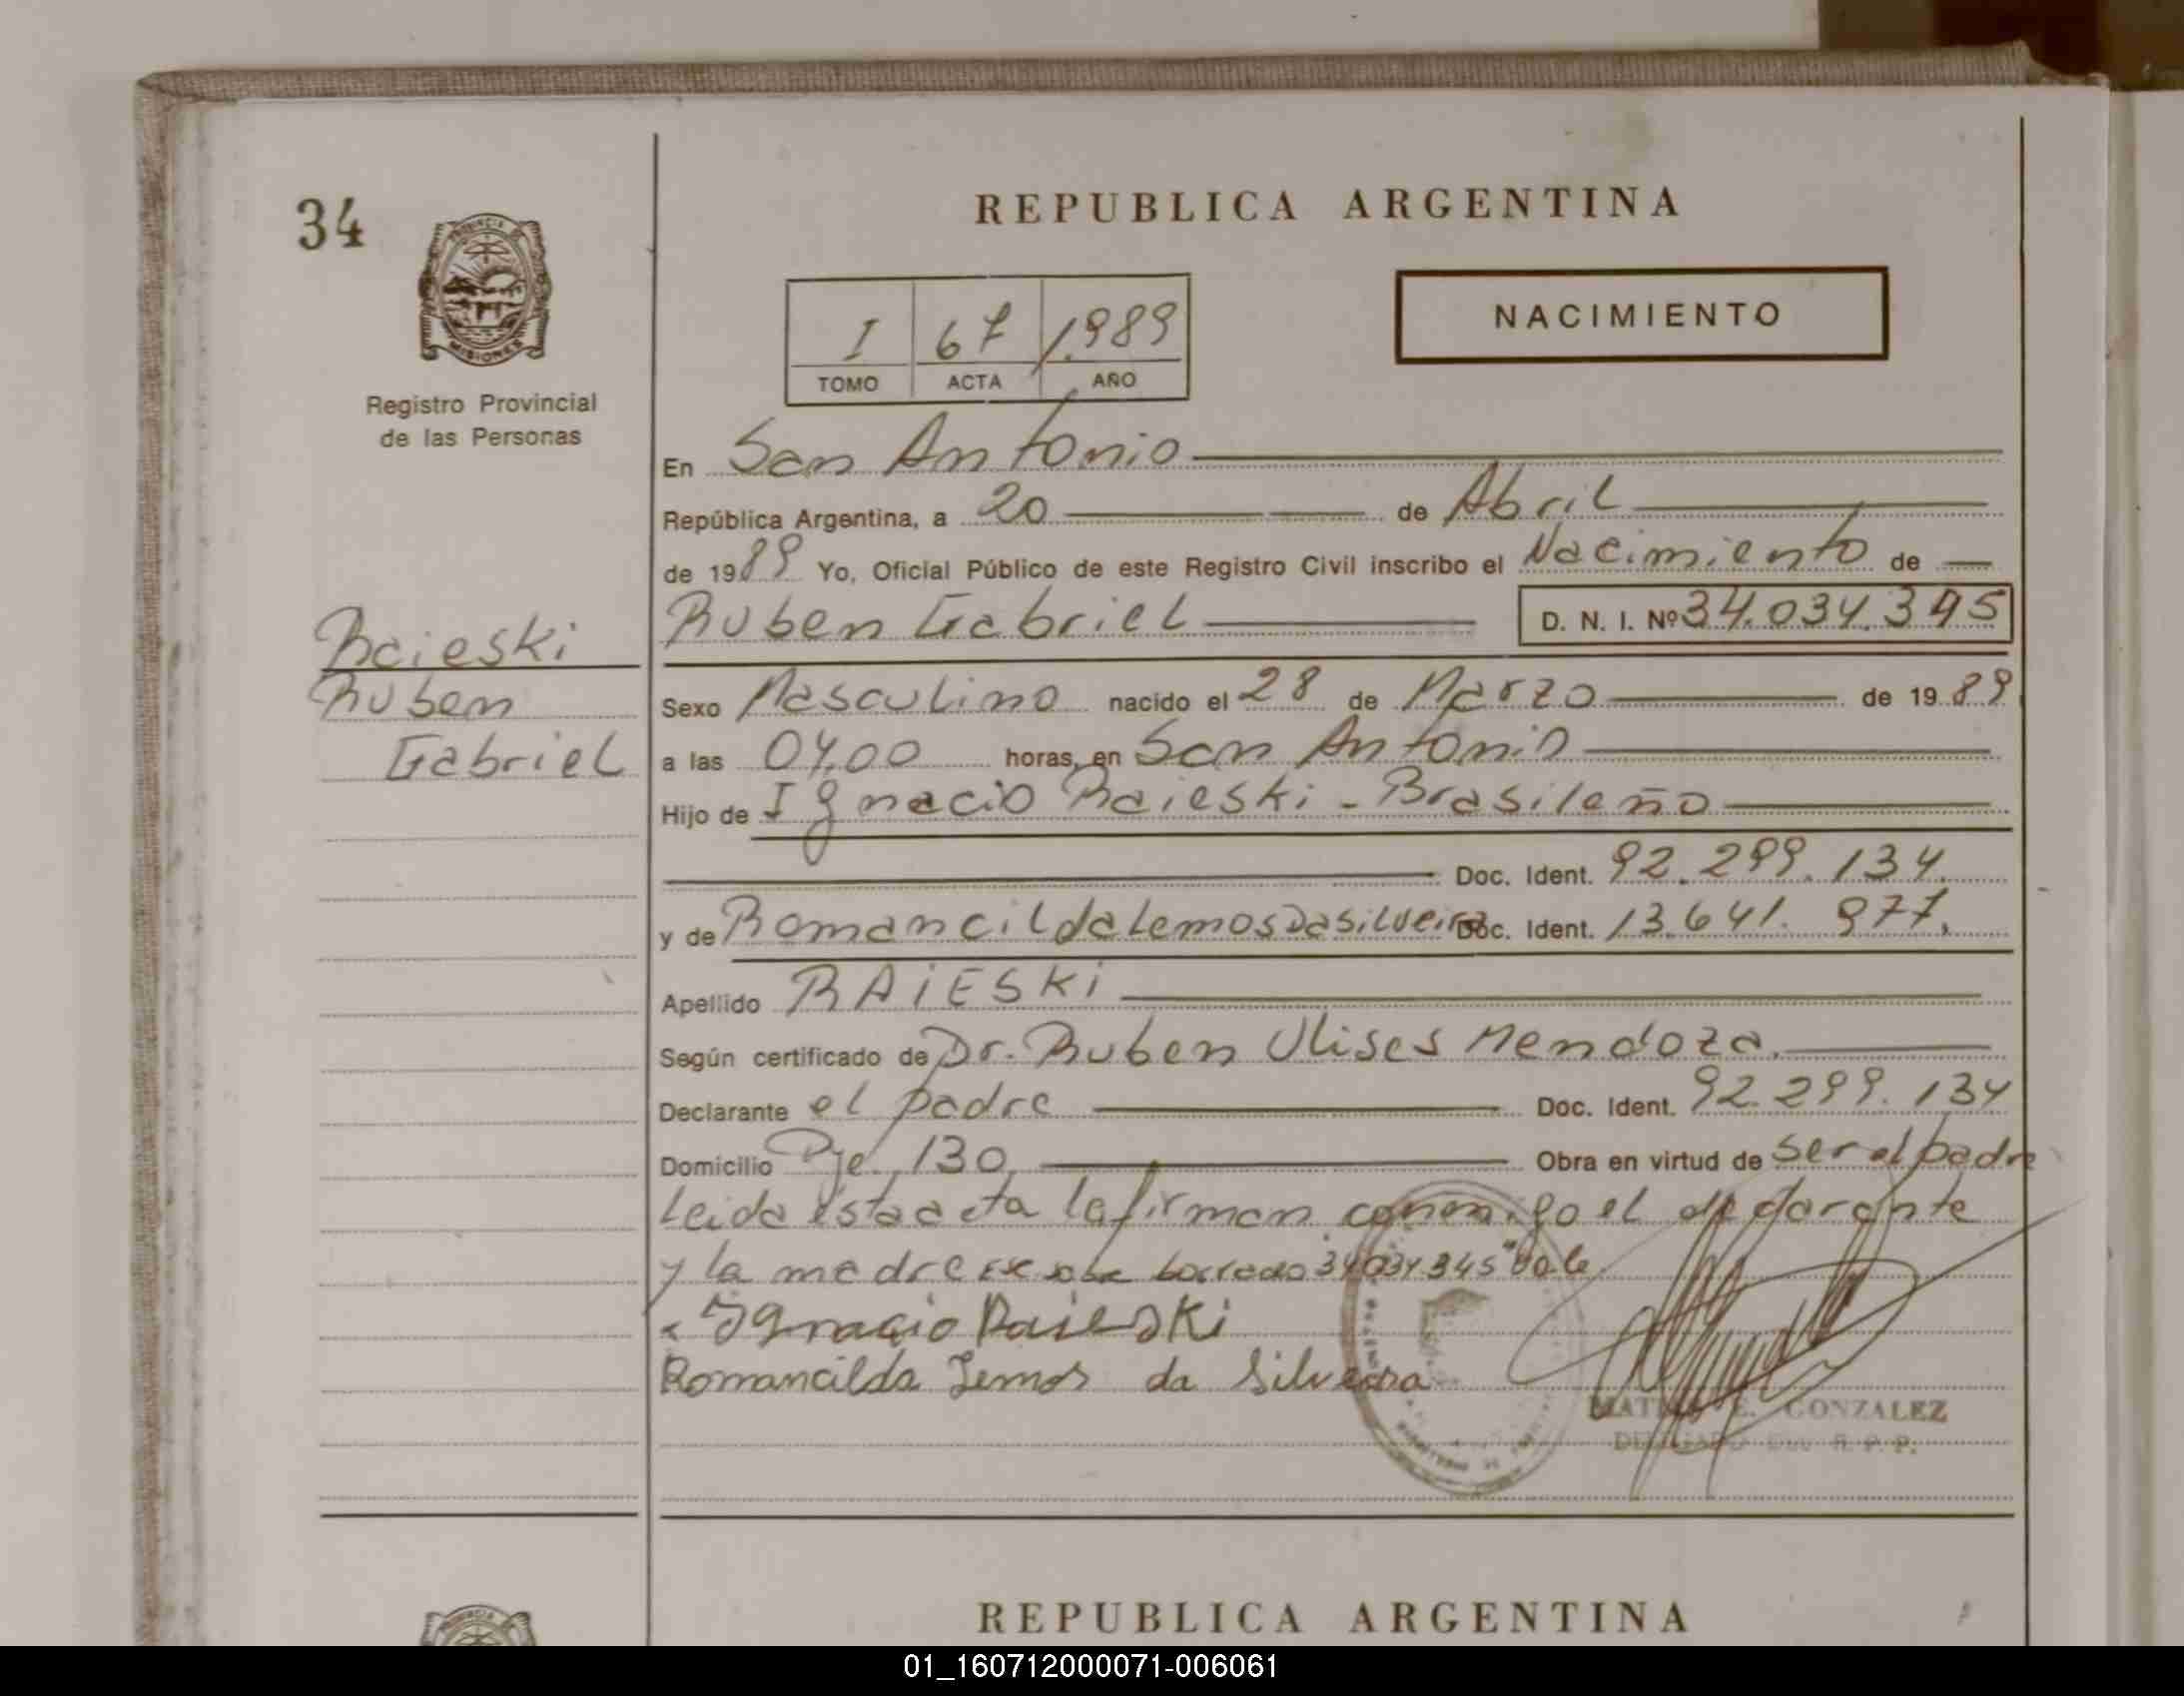 34
PROVINCIA DE
MISIONES
Registro Provincial
de las Personas
REPUBLICA ARGENTINA
I 67 1.989
TOMO ACTA AÑO
NACIMIENTO
En San Antonio
República Argentina, a 20 de Abril
de 1989 Yo, Oficial Público de este Registro Civil inscribo el Nacimiento de
Ruben Gabriel D. N. I. Nº 34.034.345
Raieski
Ruben
Gabriel
Sexo Masculino nacido el 28 de Marzo de 1989
a las 04,00 horas, en San Antonio
Hijo de Ignacio Raieski - Brasileño
Doc. Ident. 92.299.134.
y de Romancilda Lemos Da Silveira Doc. Ident. 13.641.977.
Apellido RAiESKi
Según certificado de Dr. Ruben Ulises Mendoza.
Declarante el padre Doc. Ident. 92.299.134
Domicilio Pje. 130, Obra en virtud de ser el padre
Leida esta acta la firman conmigo el declarante
y la madre sobre borrado 34034345 "Vale
Ignacio Raieski
Romancilda Lemos da Silveira
E. GONZALEZ
DELEGADO R. P. P.
REPUBLICA ARGENTINA
01_160712000071-006061